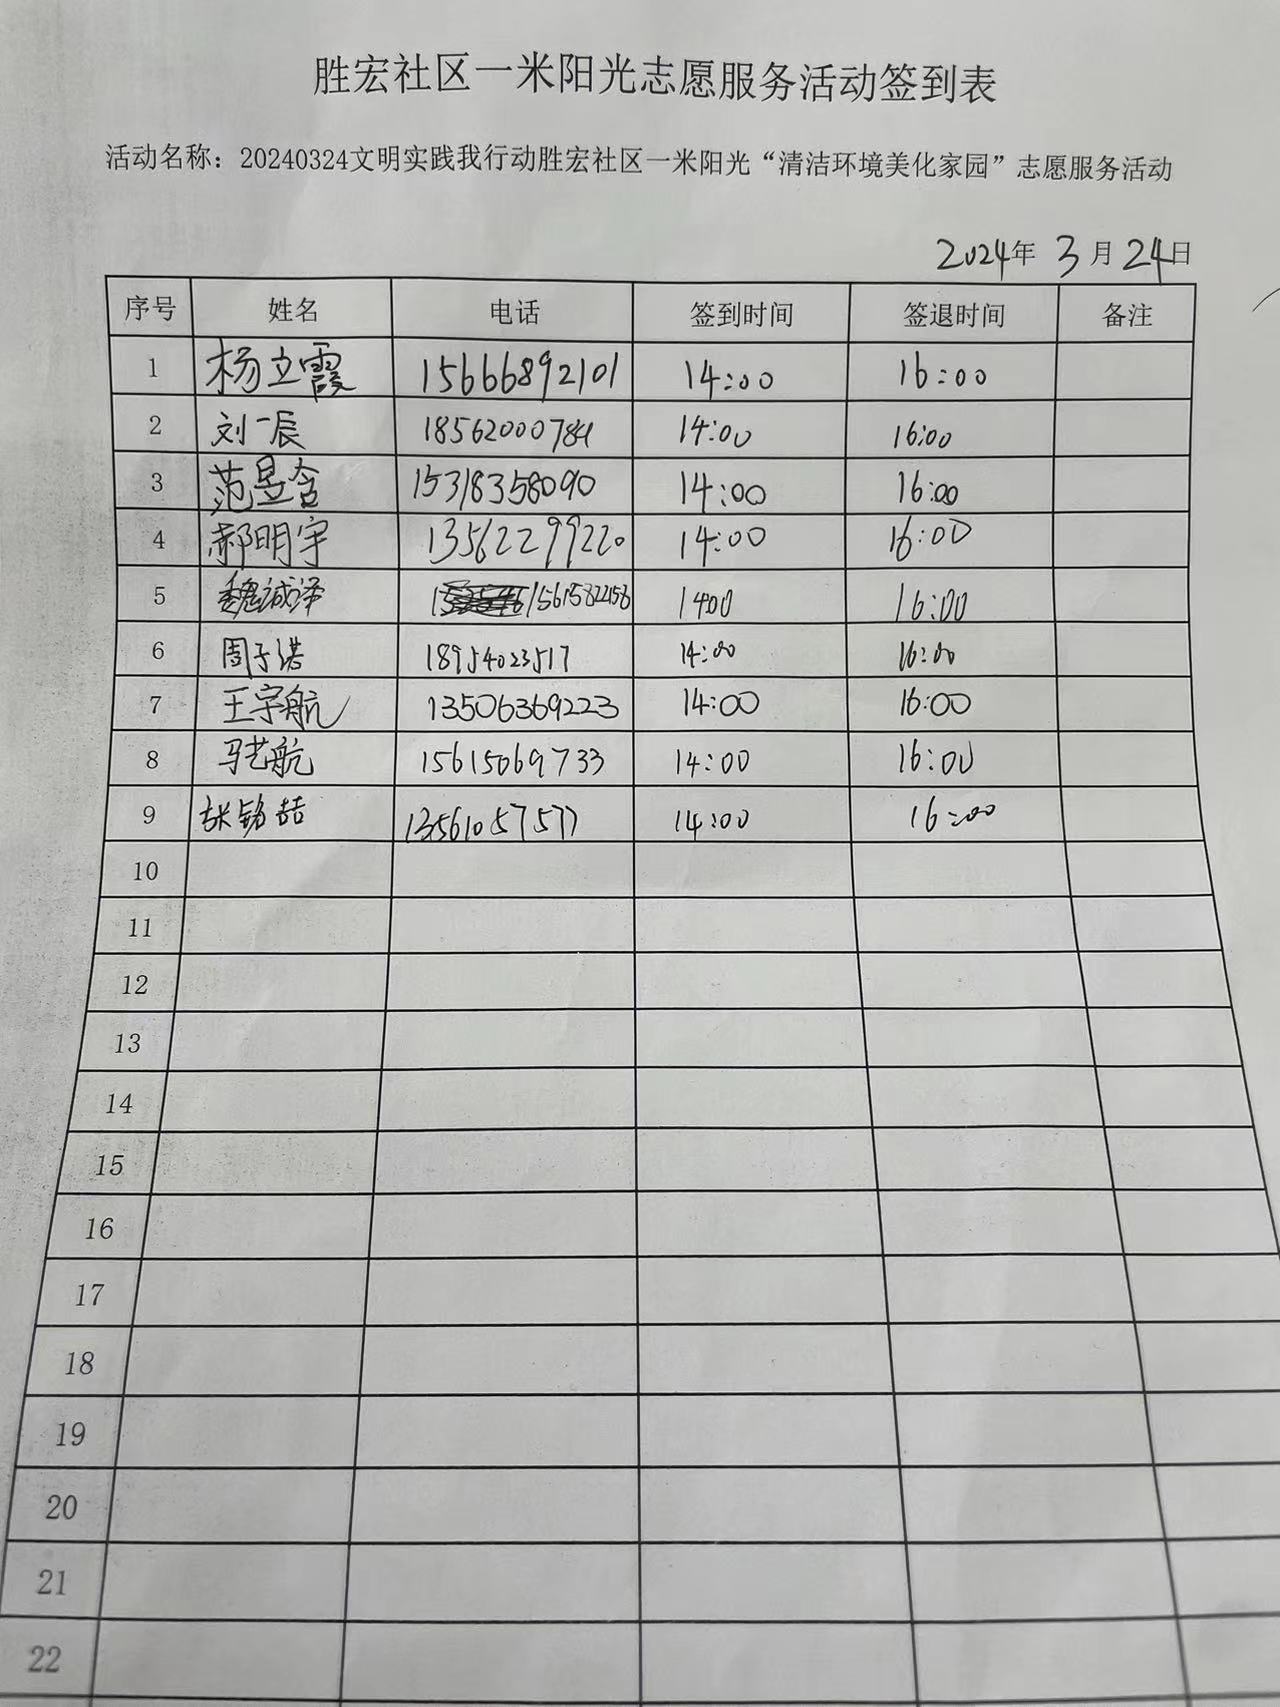 胜宏社区一米阳光志愿服务活动签到表
活动名称：20240324文明实践我行动胜宏社区一米阳光“清洁环境美化家园”志愿服务活动
2024年 3月24日
序号 姓名 电话 签到时间 签退时间 备注
1 杨立霞 15666892101 14:00 16:00
2 刘一辰 14:00 16:00
3 范昱含 15318358090 14:00 16:00
4 郝明宇 13562299220 14:00 16:00
5 魏诚泽 15615822158 1400 16:00
6 周子诺 18954023517 14:00 16:00
7 王宇航 13506369223 14:00 16:00
8 马艺航 15615069733 14:00 16:00
9 张铭喆 13561057577 14:00 16:00
10
11
12
13
14
15
16
17
18
19
20
21
22